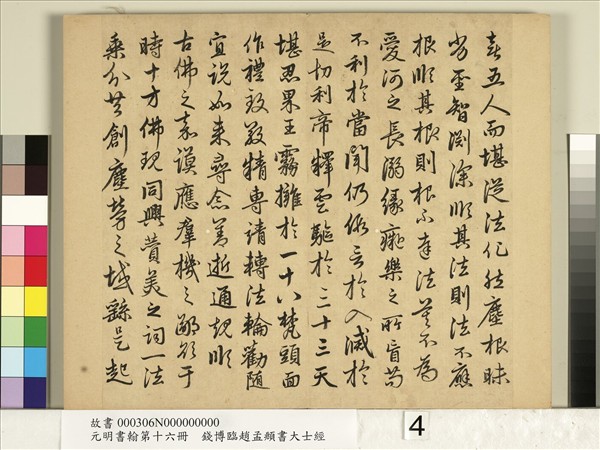 喜五人而堪從法化然塵根昧
劣聖智淵深順其法則法不應
根順其根則根不達法莫不為
愛河之長溺緣癡樂之所盲苟
不利於當聞仍假言於入滅於
是忉利帝釋雲驅於三十三天
堪忍果王霧擁於一十八梵頭面
作禮致敬精專請轉法輪勸隨
宜說如來尋念善逝通規順
古佛之嘉謨應羣機之鄙欲于
時十方佛現同興讚美之詞一法
乘分共創塵勞之域繇是起
故書 000306N000000000
元明書翰第十六冊　錢博臨趙孟頫書大士經
4